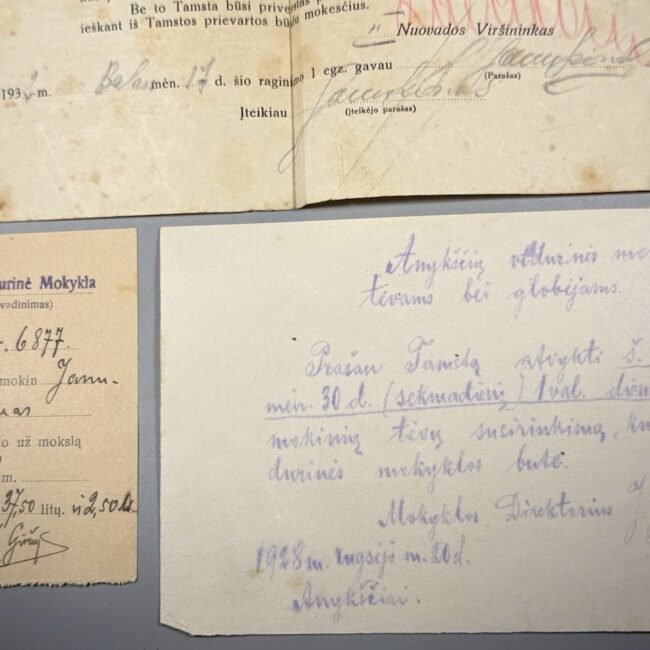 Be to Tamsta būsi prive
ieškant iš Tamstos prievartos būdu mokesčius.
Nuovados Viršininkas
1932 m. Bal mėn. 17 d. šio raginimo 1 egz. gavau
(Parašas)
Įteikiau
(įteikėjo parašas)
urinė Mokykla
vadinimas)
r. 6877.
mokin Janu-
nas
o už mokslą
m.
37,50 litų. ir 2,50 lt.
Anykščių vidurinės mo
tėvams bei globėjams.
Prašau Tamstą atvykti š.
mėn. 30 d. (sekmadienį) 1 val. dien
mokinių tėvų susirinkimą, ku
durinės mokyklos bute.
Mokyklos Direktorius J
1928 m. rugsėjo m. 20 d.
Anykščiai.